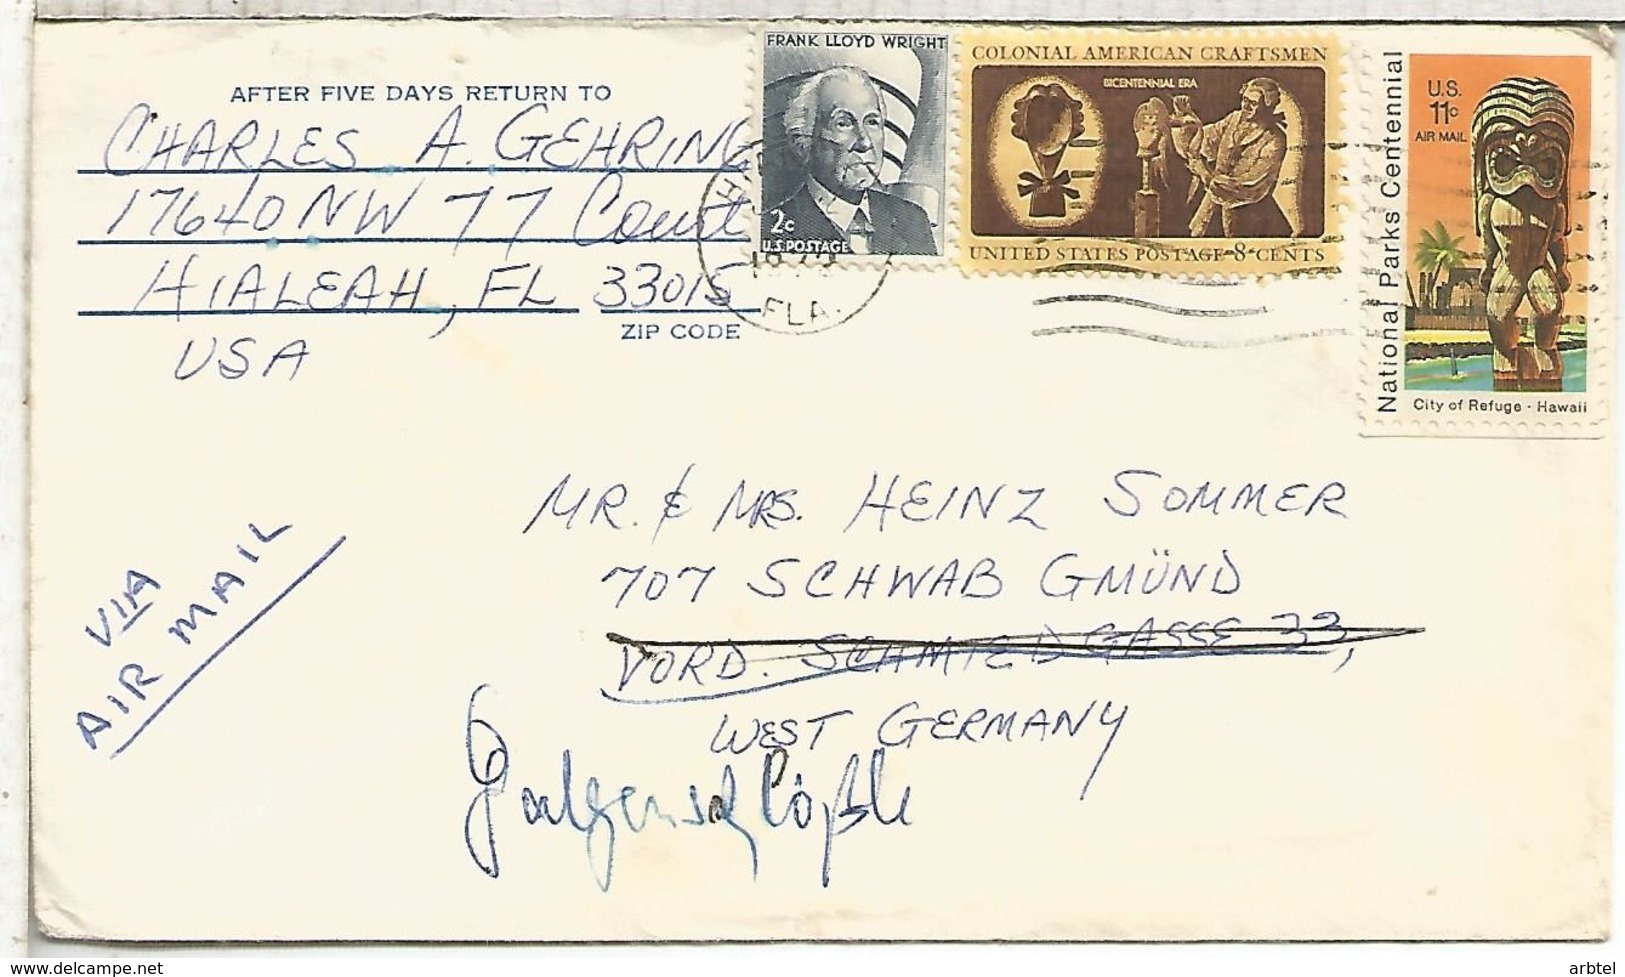 AFTER FIVE DAYS RETURN TO
CHARLES A. GEHRING
17640 NW 77 Court
HIALEAH, FL 33015
ZIP CODE
USA
FRANK LLOYD WRIGHT
2c
U.S. POSTAGE
FLA.
COLONIAL AMERICAN CRAFTSMEN
BICENTENNIAL ERA
UNITED STATES POSTAGE 8 CENTS
National Parks Centennial
U.S.
11c
AIR MAIL
City of Refuge - Hawaii
VIA
AIR MAIL
MR. & MRS. HEINZ SOMMER
707 SCHWAB GMÜND
VORD. SCHMIEDGASSE 33,
WEST GERMANY
www.delcampe.net
arbtel